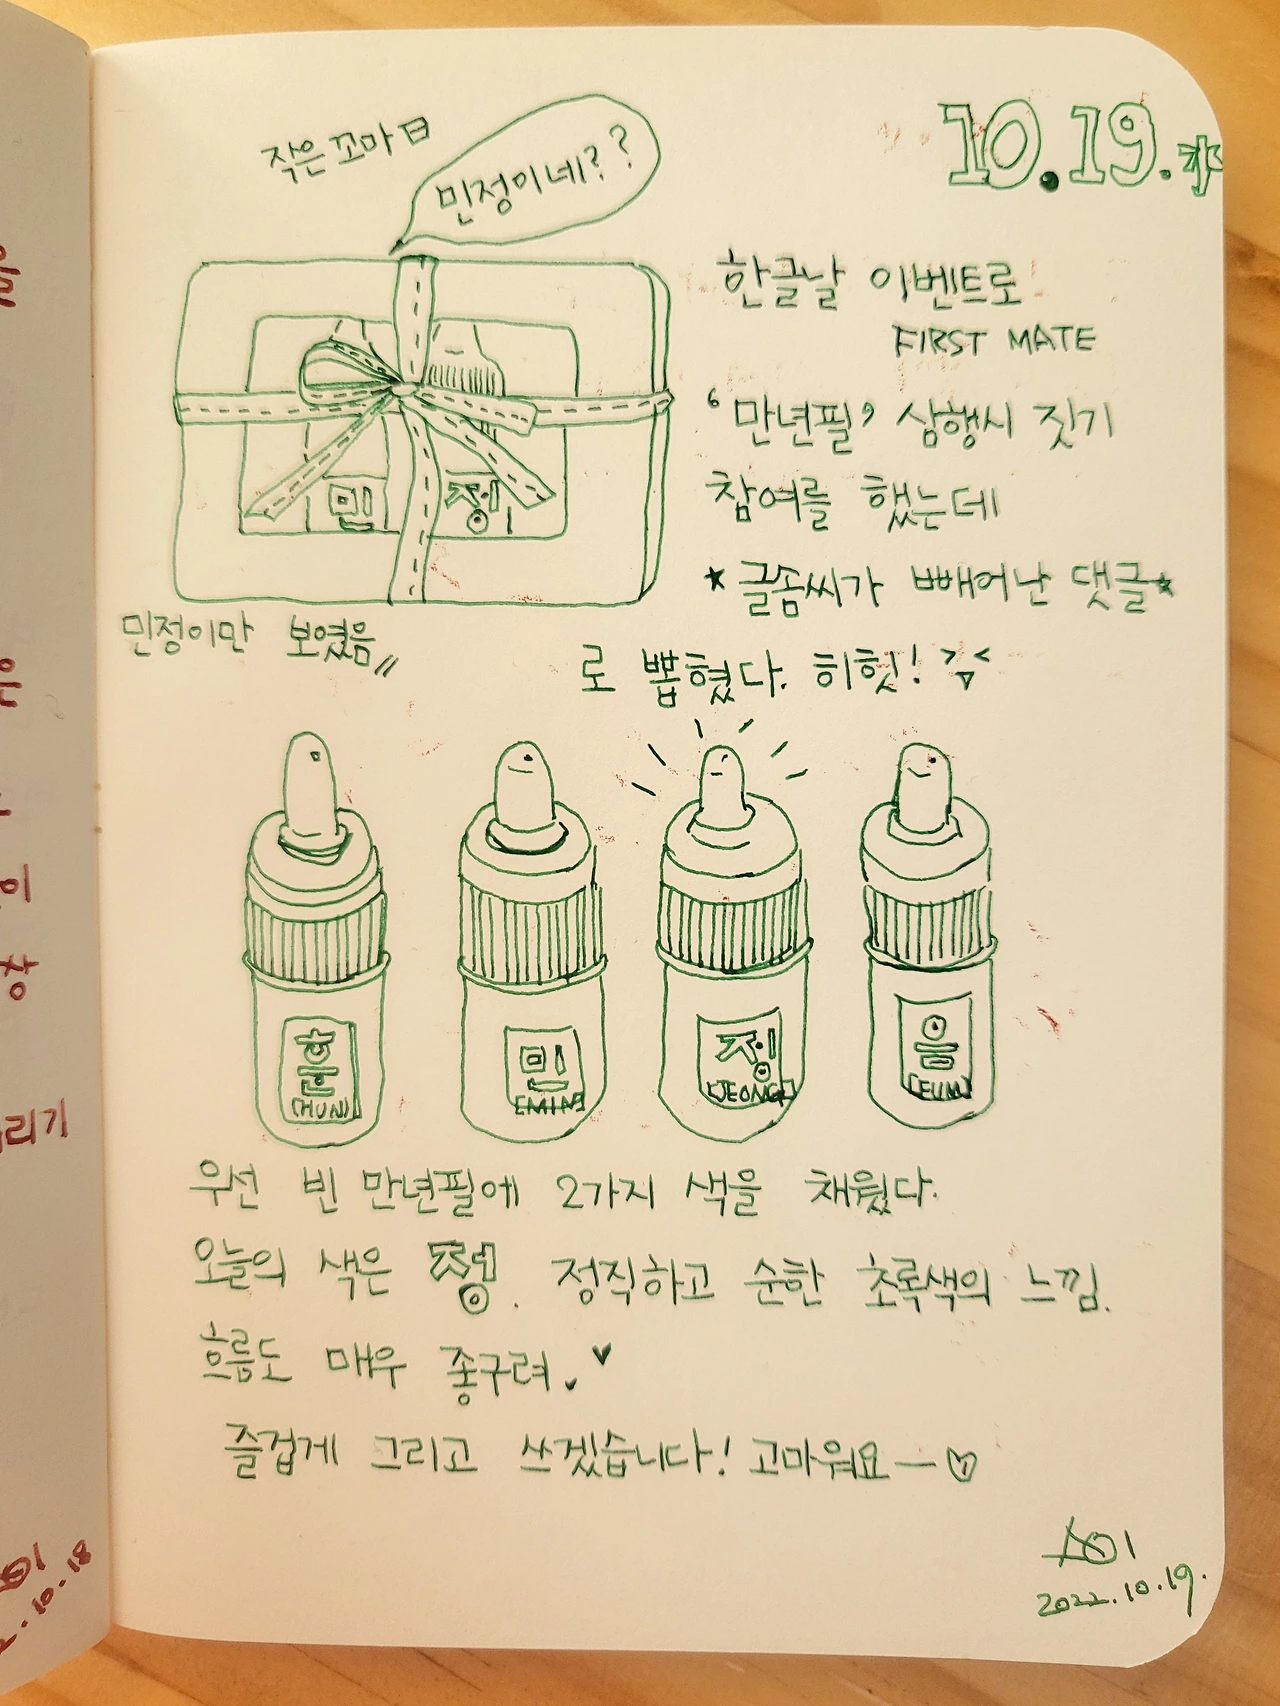 10.19.水
작은 꼬마日
민정이네??
한글날 이벤트로
FIRST MATE
'만년필' 삼행시 짓기
참여를 했는데
★글솜씨가 빼어난 댓글★
로 뽑혔다. 히힛!
민 정
민정이만 보였음〃
훈 민 정 음
[HUN] [MIN] [JEONG] [EUM]
우선 빈 만년필에 2가지 색을 채웠다.
오늘의 색은 정. 정직하고 순한 초록색의 느낌.
흐름도 매우 좋구려.♥
즐겁게 그리고 쓰겠습니다! 고마워요ー♡
2022.10.19.
은
이
창
리기
10.18